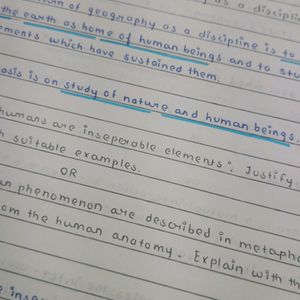 of geography as a discipline is to
the earth as home of human beings and to stu
ements which have sustained them.
asis is on study of nature and human beings.
humans are inseperable elements". Justify
h suitable examples.
OR
an phenomenon are described in metapho
om the human anatomy. Explain with th